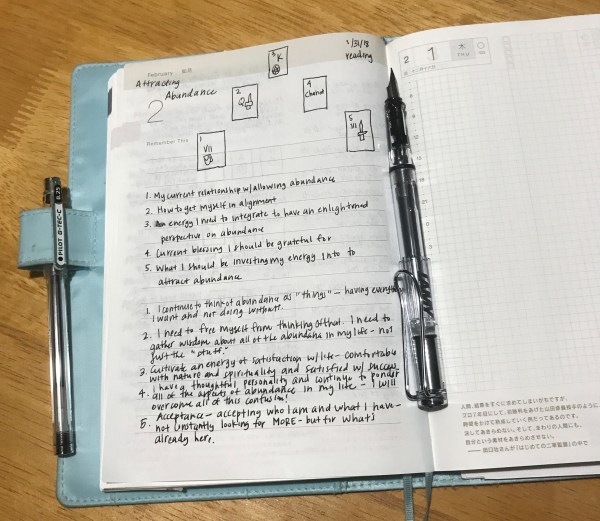 February
1/31/18
reading
Attracting
Abundance
2
Remember This
3 K
2
Q
4
Chariot
1
VII
5
III
1. My current relationship w/allowing abundance
2. How to get myself in alignment
3. energy I need to integrate to have an enlightened
perspective on abundance
4. Current blessing I should be grateful for
5. What I should be investing my energy into to
attract abundance
1. I continue to think of abundance as "things" - having everything
I want and not doing without.
2. I need to free myself from thinking of that. I need to
gather wisdom about all of the abundance in my life - not
just the "stuff."
3. Cultivate an energy of satisfaction w/life - comfortable
with nature and spirituality and satisfied w/ success.
4. I have a thoughtful personality and continue to ponder
all of the aspects of abundance in my life - I will
overcome all of this confusion!
5. Acceptance - accepting who I am and what I have -
not constantly looking for MORE - but for what's
already here.
PILOT G-TEC-C
0.25
LAMY
2
1
木
THU